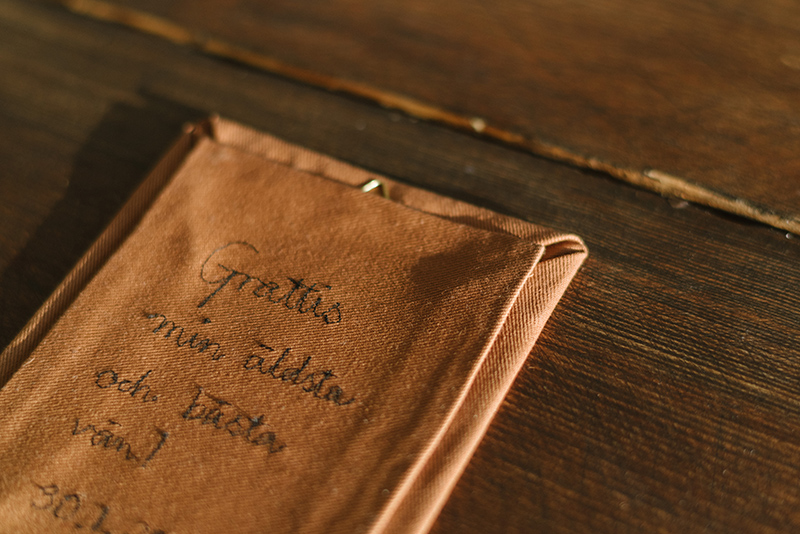 Grattis
min äldsta
och bästa
vän!
30.1